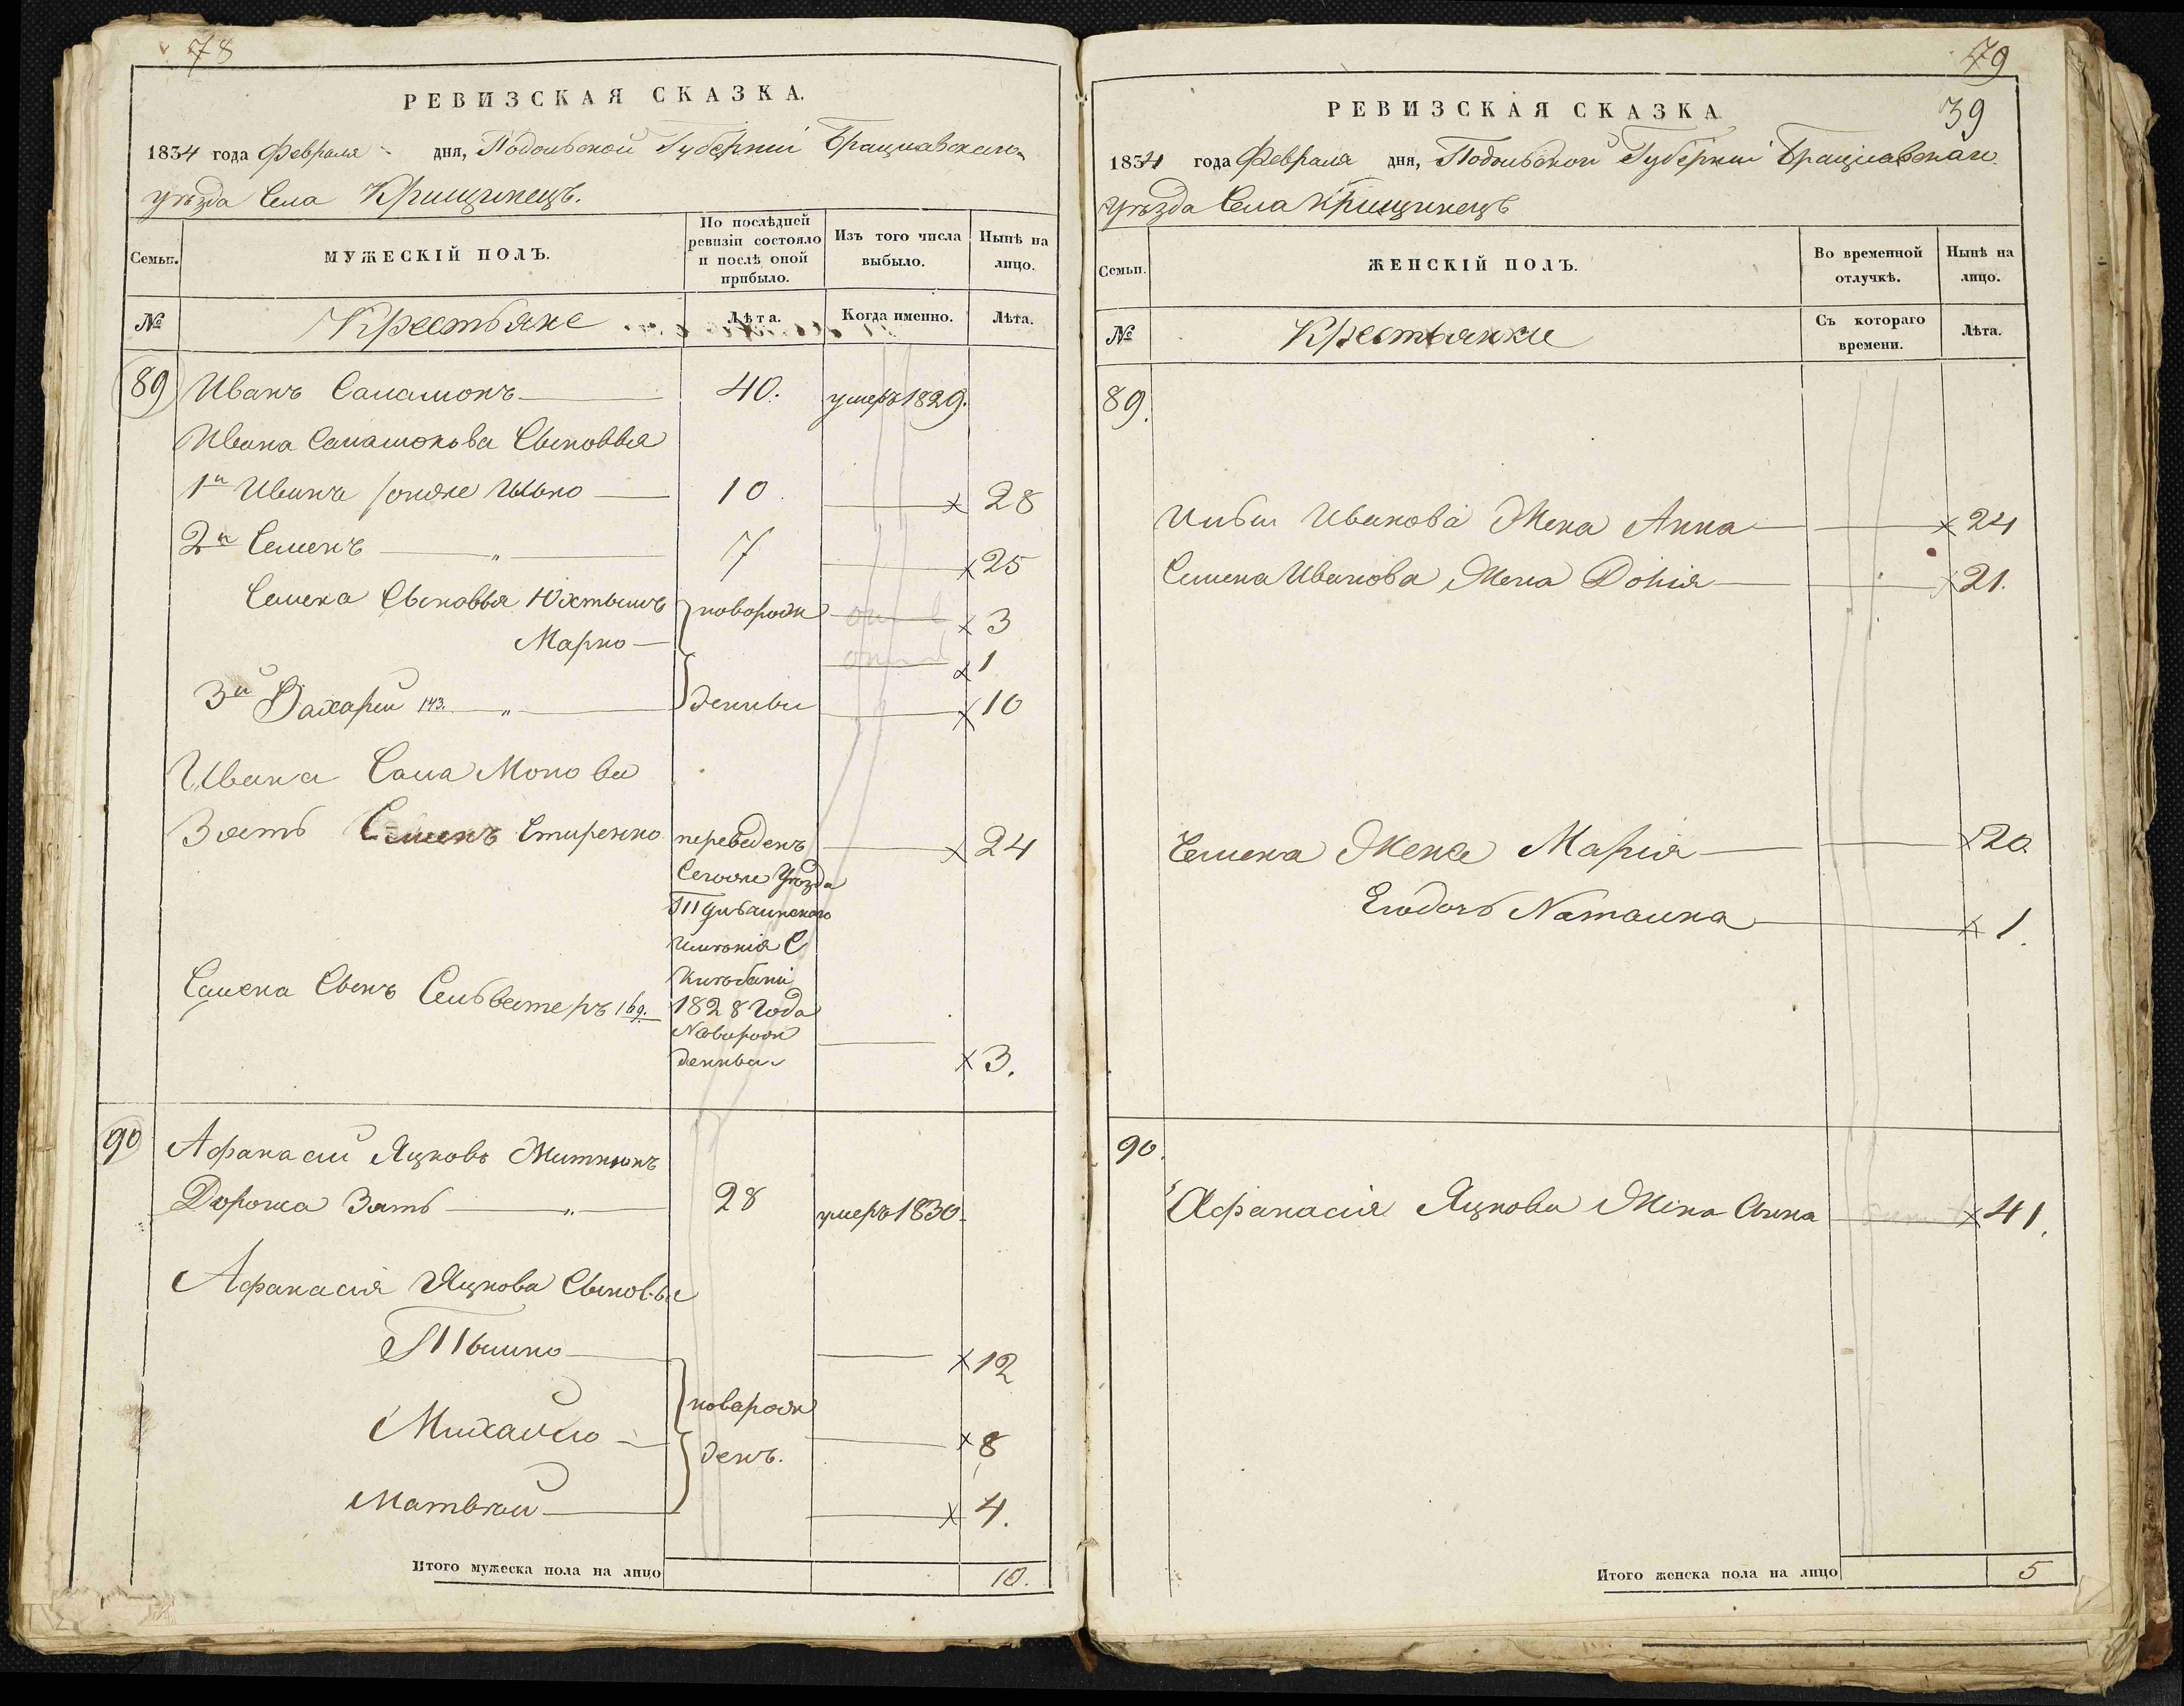 78
РЕВИЗСКАЯ СКАЗКА.
1834 года Февраля дня, Подольской Губерніи Брацлавскаго
уѣзда Села Крищинецъ.
Семьи. МУЖЕСКІЙ ПОЛЪ. По послѣдней ревизіи состояло и послѣ оной прибыло. Изъ того числа выбыло. Нынѣ на лицо.
№ Крестьяне Лѣта. Когда именно. Лѣта.
89 Иванъ Саламонъ 40. умеръ 1829.
Ивана Саламонова Сыновья
1й Ивана 10 28
2й Семенъ 7 25
Семена Сыновья Юхтымъ новорож 3
Марко 1
3й Захарій 143. денные 10
Ивана Саламонова
Зять Семенъ переведенъ 24
Уѣзда
имѣнія С
1828 Года
Семена Сынъ Сильвестеръ 169.Новорож
денные 3.
90 Афанасій Яцковъ
Дорожа Зять 28 умеръ 1830
Афанасія Яцкова Сыновья
Тымко 12
Михайло новорож 8
денъ.
Матвѣй 4.
Итого мужеска пола на лицо 10.
79
39
РЕВИЗСКАЯ СКАЗКА
1834 года Февраля дня, Подольской Губерніи Брацлавскаго
уѣзда Села Крищинецъ
Семьи. ЖЕНСКІЙ ПОЛЪ. Во временной отлучкѣ. Нынѣ на лицо.
№ Крестьянки Съ котораго времени. Лѣта.
89.
Иванова Жена Анна 24
Семена Иванова Жена Домія 21.
Семена Жена Марія 20
Егодочь Наталка 1.
90.
Афанасія Яцкова Жена Анна 41.
Итого женска пола на лицо 5